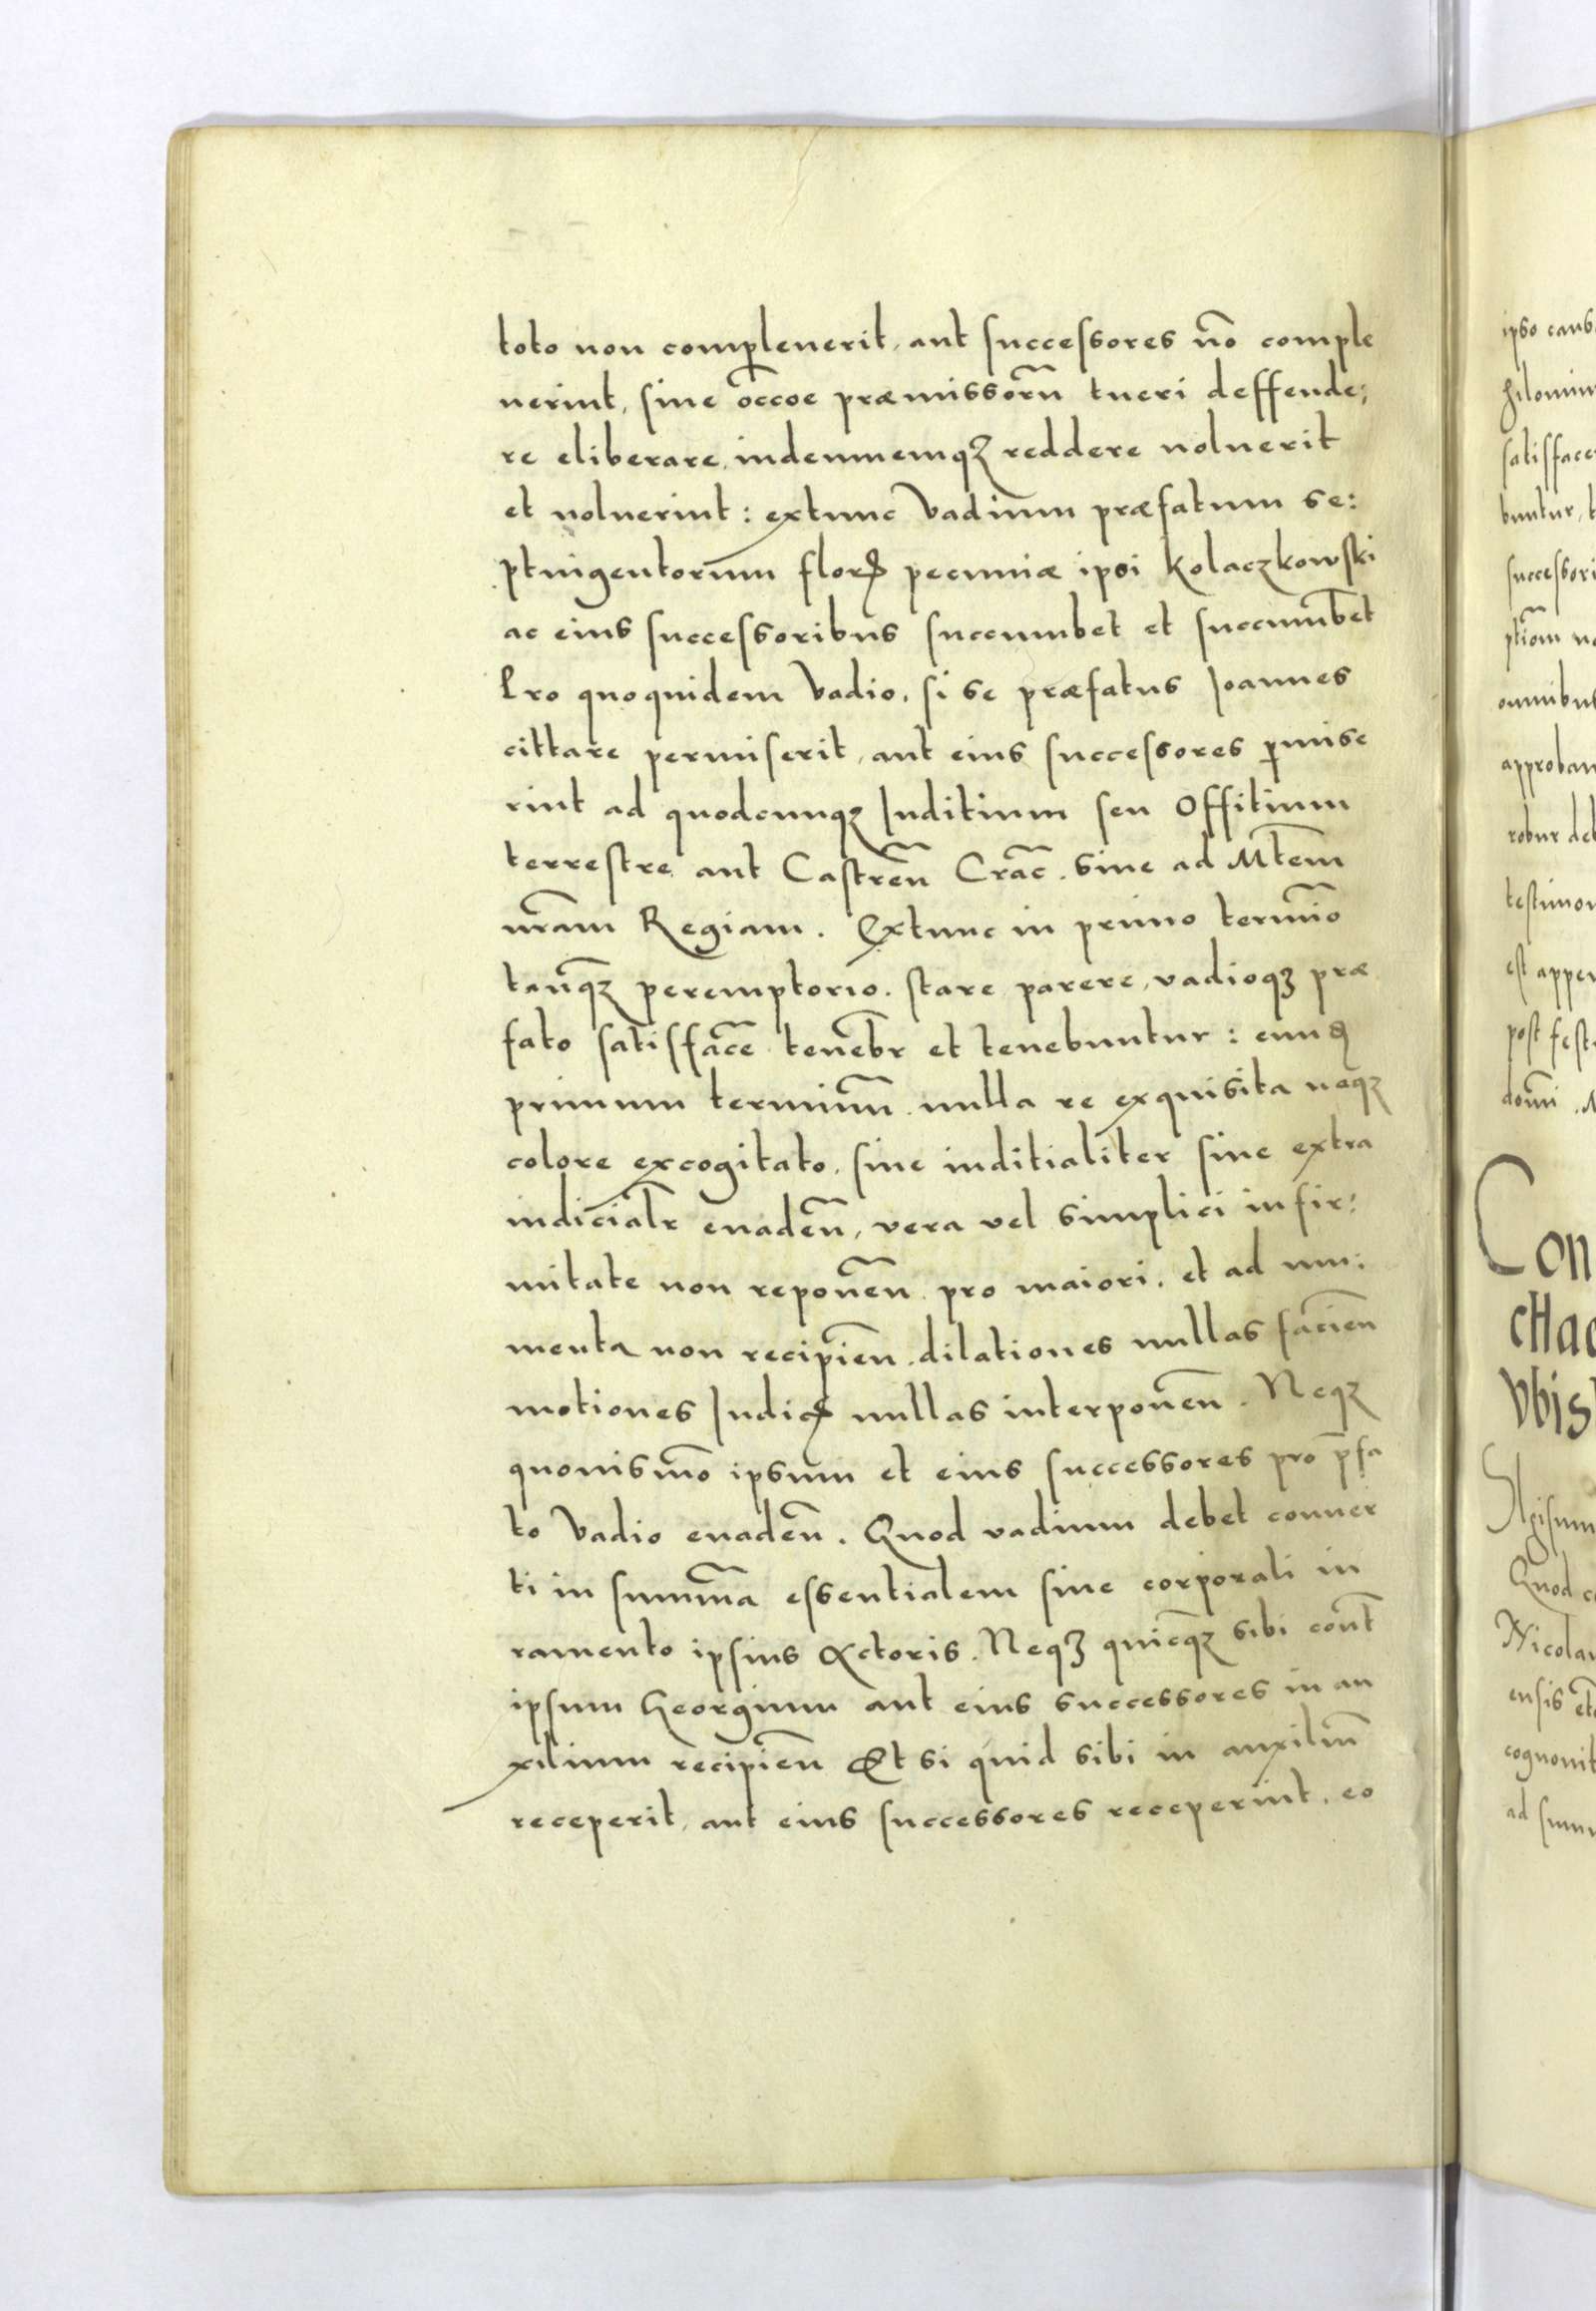 toto non compleuerit, aut successores nō comple
uerint, siue occōe præmissorū tueri deffende:
re eliberare, indemnemqꝫ reddere noluerit
et noluerint: extunc Vadium præfatum se:
ptuigentorum florꝭ pecuniæ ipsi Kolaczkowski
ac eius successoribus succumbet et succumbēt
Pro quoquidem Vadio, si se præfatus Joannes
cittare permiserit, aut eius successores ꝑmise
rint ad quodcunqꝫ Juditium seu Offitium
terrestre aut Castrēn Crāc. siue ad Mtēm
nrām Regiam. Extunc in primo termīo
tanqꝫ peremptorio. stare parere, vadioqꝫ præ
fato satisfacē tenēbr et tenebuntur: eundꝫ
primum terminū nulla re exquisita neqꝫ
colore excogitato, siue iuditialiter siue extra
iudicialr̄ euadeñ, vera vel simplici infir:
mitate non reponeñ pro maiori, et ad mu:
menta non recipieñ. dilationes nullas facieñ
motiones Judicꝭ nullas interponeñ. Neqꝫ
quouismō ipsum et eius successores pro p̄fa
to Vadio euadeñ. Quod vadium debet conuer
ti in summā essentialem sine corporali iu
ramento ipsius Actoris. Neqꝫ quicqꝫ sibi cont̄
ipsum Georgium aut eius successores in au
xilium recipieñ Et si quid sibi in auxiliū
receperit, aut eius successores receperint, eo
ipso caus
hilomin
satisface
buntur, t
successori
ptiōm no
omnibus
approban
robur deb
testimon
est appen
post fest
domī. M
Con
cHac
Vbis
Sigisum
Quod c
Nicolau
ensis et
cognouit
ad summ